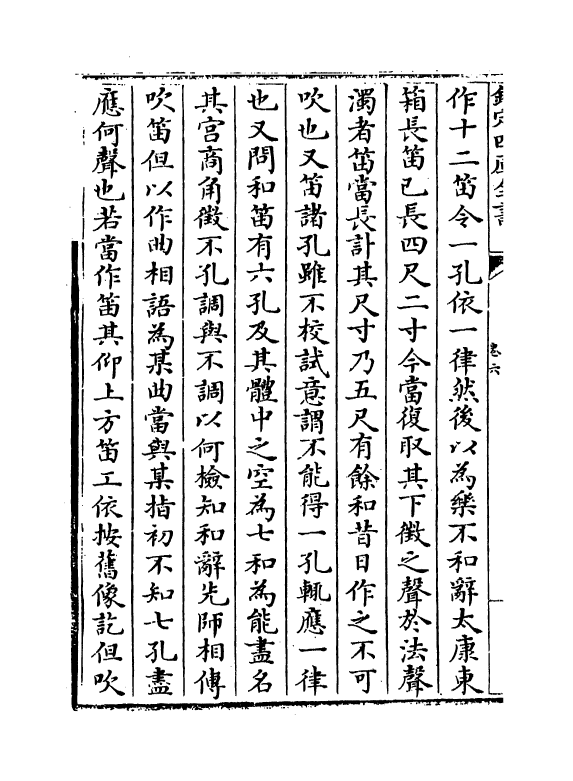 欽定四庫全書
卷六
作十二笛令一孔依一律然後以為樂不和辭太康東
箱長笛已長四尺二寸今當復取其下徵之聲於法聲
濁者笛當長計其尺寸乃五尺有餘和昔日作之不可
吹也又笛諸孔雖不校試意謂不能得一孔輒應一律
也又問和笛有六孔及其體中之空為七和為能盡名
其宫商角徵不孔調與不調以何檢知和辭先師相傳
吹笛但以作曲相語為某曲當與某指初不知七孔盡
應何聲也若當作笛其仰上方笛工依按舊像訖但吹